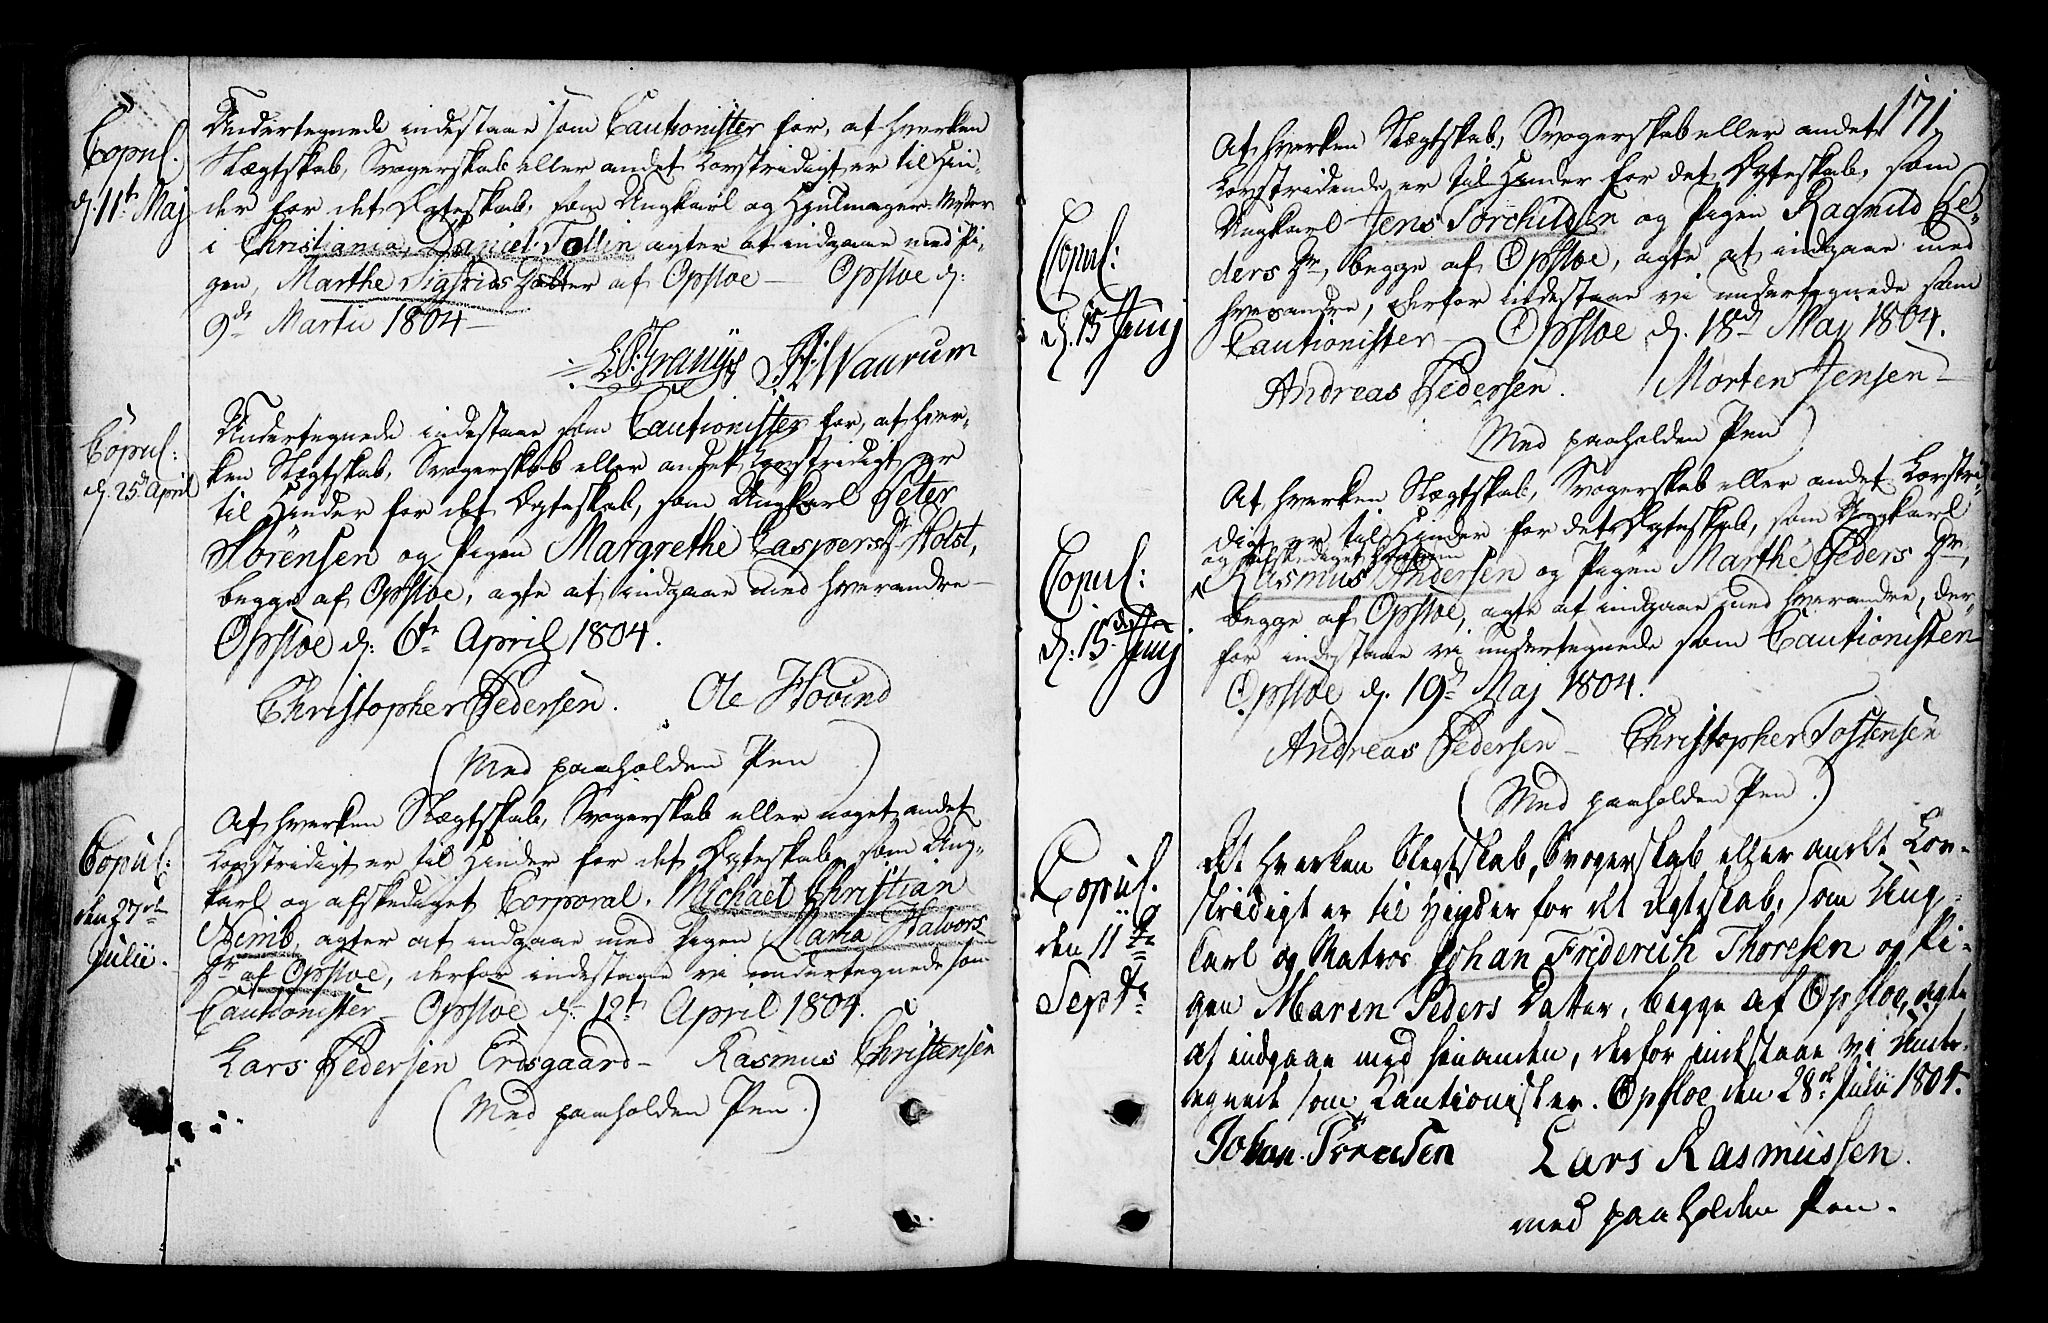 Copul.
d. 11te Maj
Undertegnede indestaae som Cautionister for, at hverken
Slægtskab, Svogerskab eller andet Lovstridigt er til Hin-
der for det Ægteskab, som Ungkarl og Hjulmager Mester
i Christiania, Daniel Tollin agter at indgaae med Pi-
gen, Marthe Sigfrids Datter af Opsloe — Opsloe d:
9de Martii 1804 —
Waurum
Copul:
d. 25de April
Undertegnede indestaae som Cautionister for, at hver-
ken Slægtskab, Svogerskab eller andet Lovstridigt er
til Hinder for det Ægteskab, som Ungkarl Peter
Sörensen og Pigen Margrethe Caspersdr Holst,
begge af Opsloe, agte at indgaae med hverandre —
Opsloe d: 6te April 1804.
Christopher Pedersen. Ole Hovind
(Med paaholden Pen)
Copul:
den 27de
Julii.
At hverken Slægtskab, Svogerskab eller noget andet
Lovstridigt er til Hinder for det Ægteskab, som Ung-
karl og afskediget Corporal, Michael Christian
Nemb, agter at indgaae med Pigen Maria Halvors
Dr af Opsloe, derfor indestaae vi undertegnede som
Cautionister — Opsloe d. 12te April 1804.
Lars Pedersen Erdsgaard — Rasmus Christensen
(Med paaholden Pen.)
171.
Copul:
d. 15 Junj
At hverken Slægtskab, Svogerskab eller andet
Lovstridende er til Hinder for det Ægteskab, som
Ungkarl Jens Torchildsen og Pigen Ragnild Pe-
ders Dr, begge af Opsloe, agte at indgaae med
hverandre, derfor indestaae vi undertegnede som
Cautionister — Opsloe d. 18de Maj 1804.
Andreas Pedersen. Morten Jensen —
(Med paaholden Pen)
Copul:
d: 15de Junj
At hverken Slægtskab, Svogerskab eller andet Lovstri-
digt er til Hinder for det Ægteskab, som Ungkarl
og afskediget
Rasmus Andersen og Pigen Marthe Peders Dr,
begge af Opsloe, agte at indgaae med hverandre, der-
for indestaae vi undertegnede som Cautionister
Opsloe d. 19de Maj 1804.
Andreas Pedersen — Christopher Tostensen
(Med paaholden Pen.)
Copul.
den 11te
Septr
At hverken Slegtskab, Svogerskab eller andet Lov-
stridigt er til Hinder for det Ægteskab, som Ung-
karl og Matros Johan Friderich Thoresen og Pi-
gen Maren Peders Datter, begge af Opsloe, agte
at indgaae med hinanden, derfor indestaae vi Under-
tegnede som Cautionister. Opsloe den 28de Julii 1804.
Johan Töresen Lars Rasmussen.
med paaholden Pen.